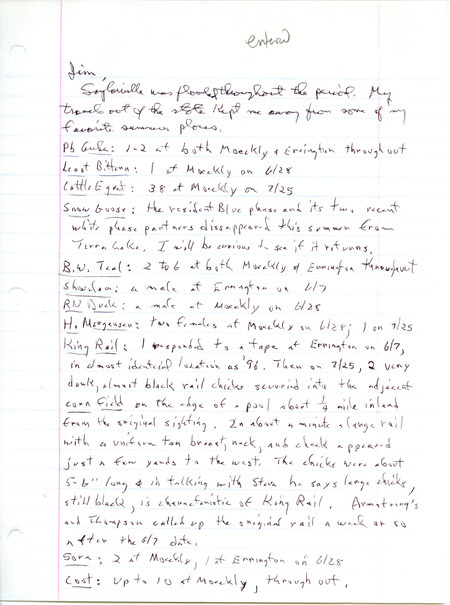 entered
Jim,
Saylorville was flooded throughout the period. My
travels out of the state kept me away from some of my
favorite summer places.
Pb Grebe: 1-2 at both Moeckly & Errington throughout
Least Bittern: 1 at Moeckly on 6/28
Cattle Egret: 38 at Moeckly on 7/25
Snow Goose: the resident Blue phase and its two recent
white phase partners dissappeared this summer from
Terra Lake. I will be curious to see if it returns.
B.W. Teal: 2 to 6 at both Moeckly & Errington throughout
Shoveler: a male at Errington on 6/7
RN Duck: a male at Moeckly on 6/28
H. Merganser: two females at Moeckly on 6/28; 1 on 7/25
King Rail: 1 responded to a tape at Errington on 6/7,
in almost identical location as '96. Then on 7/25, 2 very
dark, almost black rail chicks scurried into the adjacent
corn field on the edge of a pool about 1/4 mile inland
from the original sighting. In about a minute a large rail
with a uniform tan breast, neck, and cheek appeared
just a few yards to the west. The chicks were about
5-6" long & in talking with Steve he says large chicks,
still black, is characteristic of King Rail. Armstrong's
and Thompson called up the original rail a week or so
after the 6/7 date.
Sora: 2 at Moeckly, 1 at Errington on 6/28
Coot: up to 10 at Moeckly, throughout.